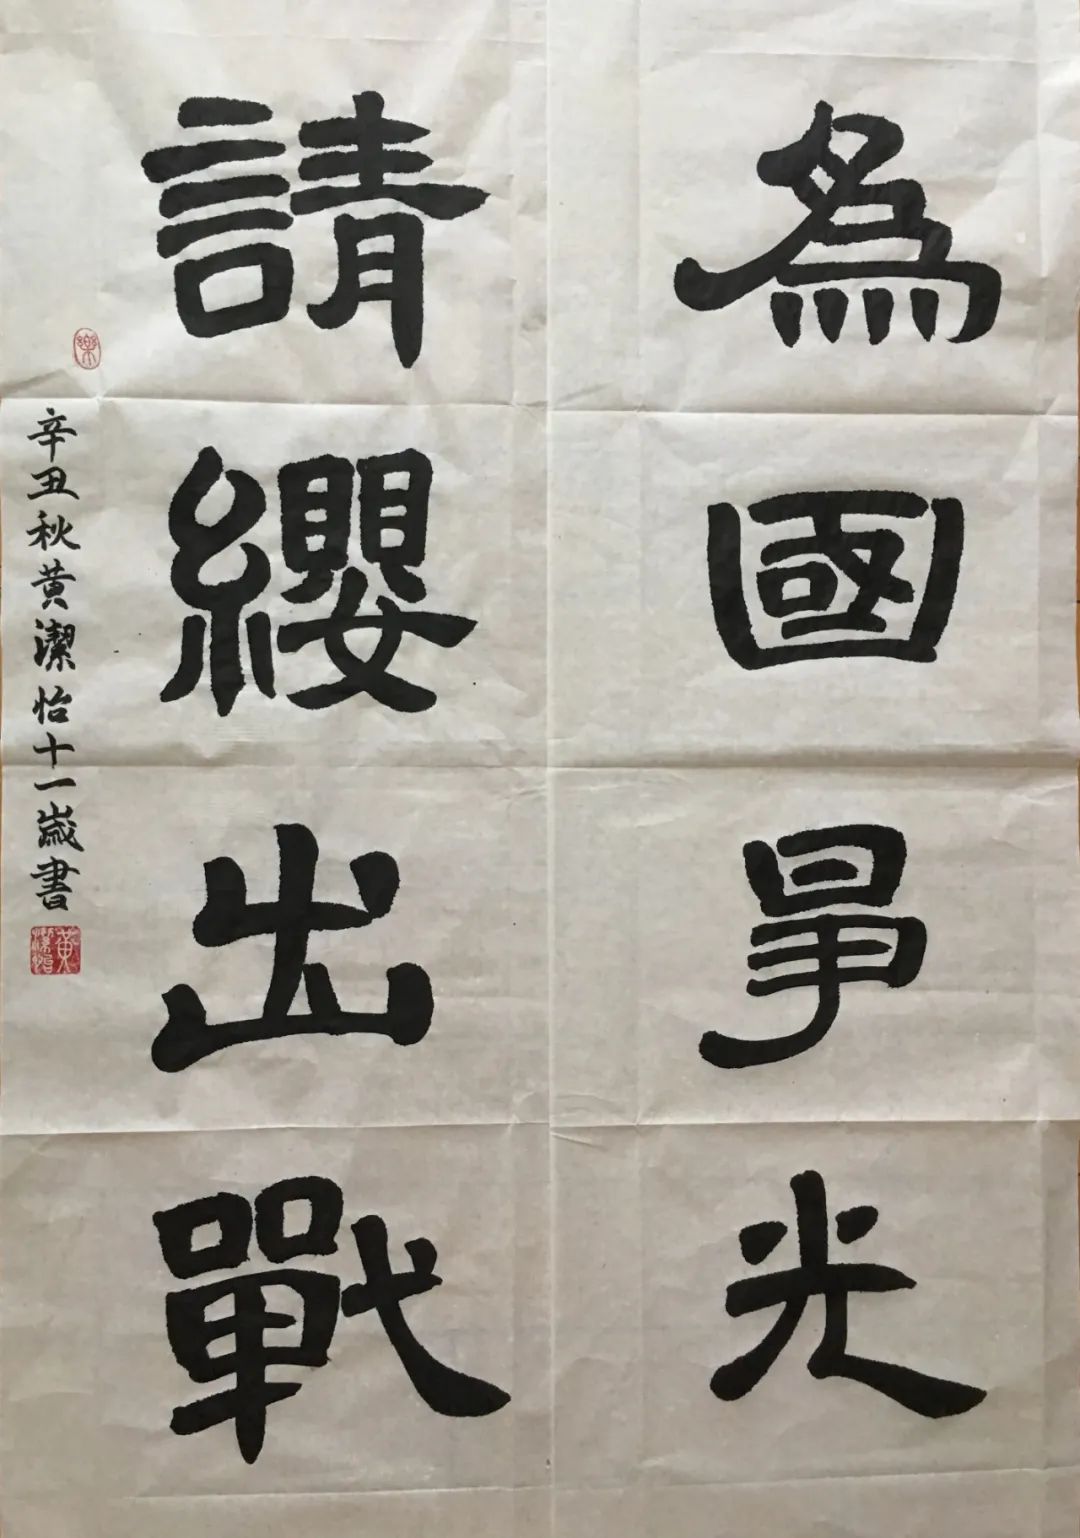 為國爭光
請纓出戰
辛丑秋黃潔怡十一歲書
樂
黃潔怡